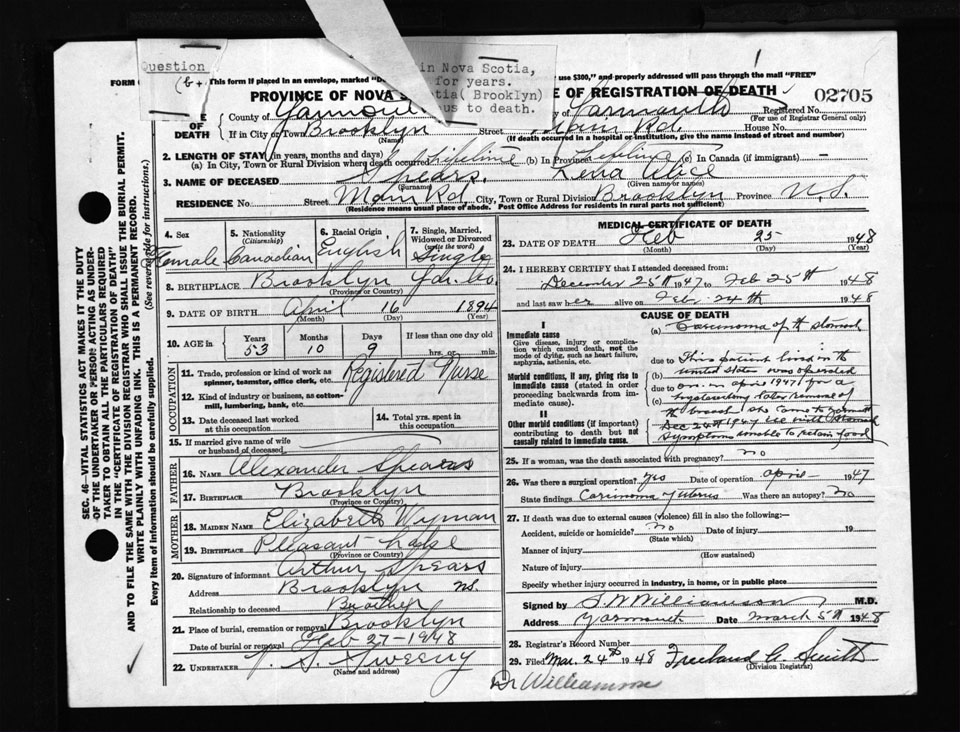 Question
(b+
in Nova Scotia,
for years.
tia( Brooklyn)
us to death.
FORM
This form if placed in an envelope, marked "D
use $300," and properly addressed will pass through the mail "FREE"
PROVINCE OF NOVA S
E OF REGISTRATION OF DEATH
02705
OF DEATH
County of Yarmouth
Yarmouth
Registered No.
(For use of Registrar General only)
If in City or Town Brooklyn Street Main Rd. House No.
(Name)
(If death occurred in a hospital or institution, give the name instead of street and number)
2. LENGTH OF STAY (in years, months and days)
(a) In City, Town or Rural Division where death occurred Lifetime (b) In Province Lifetime (c) In Canada (if immigrant) —
3. NAME OF DECEASED Spears, Lena Alice
(Surname) (Given name or names)
RESIDENCE No. Street Main Rd. City, Town or Rural Division Brooklyn Province N.S.
(Residence means usual place of abode. Post Office Address for residents in rural parts not sufficient)
4. Sex Female
5. Nationality (Citizenship) Canadian
6. Racial Origin English
7. Single, Married, Widowed or Divorced (write the word) Single
8. BIRTHPLACE Brooklyn Yar. Co.
(Province or Country)
9. DATE OF BIRTH April 16 1894
(Month) (Day) (Year)
10. AGE in Years 53 Months 10 Days 9 If less than one day old hrs. or min.
OCCUPATION
11. Trade, profession or kind of work as spinner, teamster, office clerk, etc. Registered Nurse
12. Kind of industry or business, as cotton-mill, lumbering, bank, etc.
13. Date deceased last worked at this occupation
14. Total yrs. spent in this occupation
15. If married give name of wife or husband of deceased
FATHER
16. NAME Alexander Spears
17. BIRTHPLACE Brooklyn
(Province or Country)
MOTHER
18. MAIDEN NAME Elizabeth Wyman
19. BIRTHPLACE Pleasant Lake
(Province or Country)
20. Signature of informant Arthur Spears
Address Brooklyn N.S.
Relationship to deceased Brother
21. Place of burial, cremation or removal Brooklyn
Date of burial or removal Feb 27-1948
22. UNDERTAKER V. S. Sweeny
(Name and address)
MEDICAL CERTIFICATE OF DEATH
23. DATE OF DEATH Feb 25 1948
(Month) (Day) (Year)
24. I HEREBY CERTIFY that I attended deceased from:
December 25th 1947 to Feb 25th 1948
and last saw her alive on Feb. 24th 1948
CAUSE OF DEATH
I
Immediate cause
Give disease, injury or complication which caused death, not the mode of dying, such as heart failure, asphyxia, asthenia, etc.
Morbid conditions, if any, giving rise to immediate cause (stated in order proceeding backwards from immediate cause).
II
Other morbid conditions (if important) contributing to death but not causally related to immediate cause.
(a) Carcinoma of the stomach
due to This patient lived in the
(b) United States was operated
due to on in April 1947 for a
(c) hysterectomy later removal of
the breast she came to Yarmouth
Dec 24th 1947 ill with stomach
symptoms unable to retain food
25. If a woman, was the death associated with pregnancy? no
26. Was there a surgical operation? yes Date of operation April 1947
State findings Carcinoma Uterus Was there an autopsy? No
27. If death was due to external causes (violence) fill in also the following:—
Accident, suicide or homicide? no Date of injury 19
(State which)
Manner of injury
(How sustained)
Nature of injury
Specify whether injury occurred in industry, in home, or in public place
Signed by S W Williamson M.D.
Address Yarmouth Date March 5th 1948
28. Registrar's Record Number
29. Filed Mar. 24th 1948 Freeland A. Smith
(Division Registrar)
Dr Williamson
SEC. 46—VITAL STATISTICS ACT MAKES IT THE DUTY
OF THE UNDERTAKER OR PERSON ACTING AS UNDER-
TAKER TO OBTAIN ALL THE PARTICULARS REQUIRED
IN THE "CERTIFICATE OF REGISTRATION OF DEATH"
AND TO FILE THE SAME WITH THE DIVISION REGISTRAR WHO SHALL ISSUE THE BURIAL PERMIT.
WRITE PLAINLY WITH UNFADING INK. THIS IS A PERMANENT RECORD.
Every item of information should be carefully supplied. (See reverse side for instructions.)